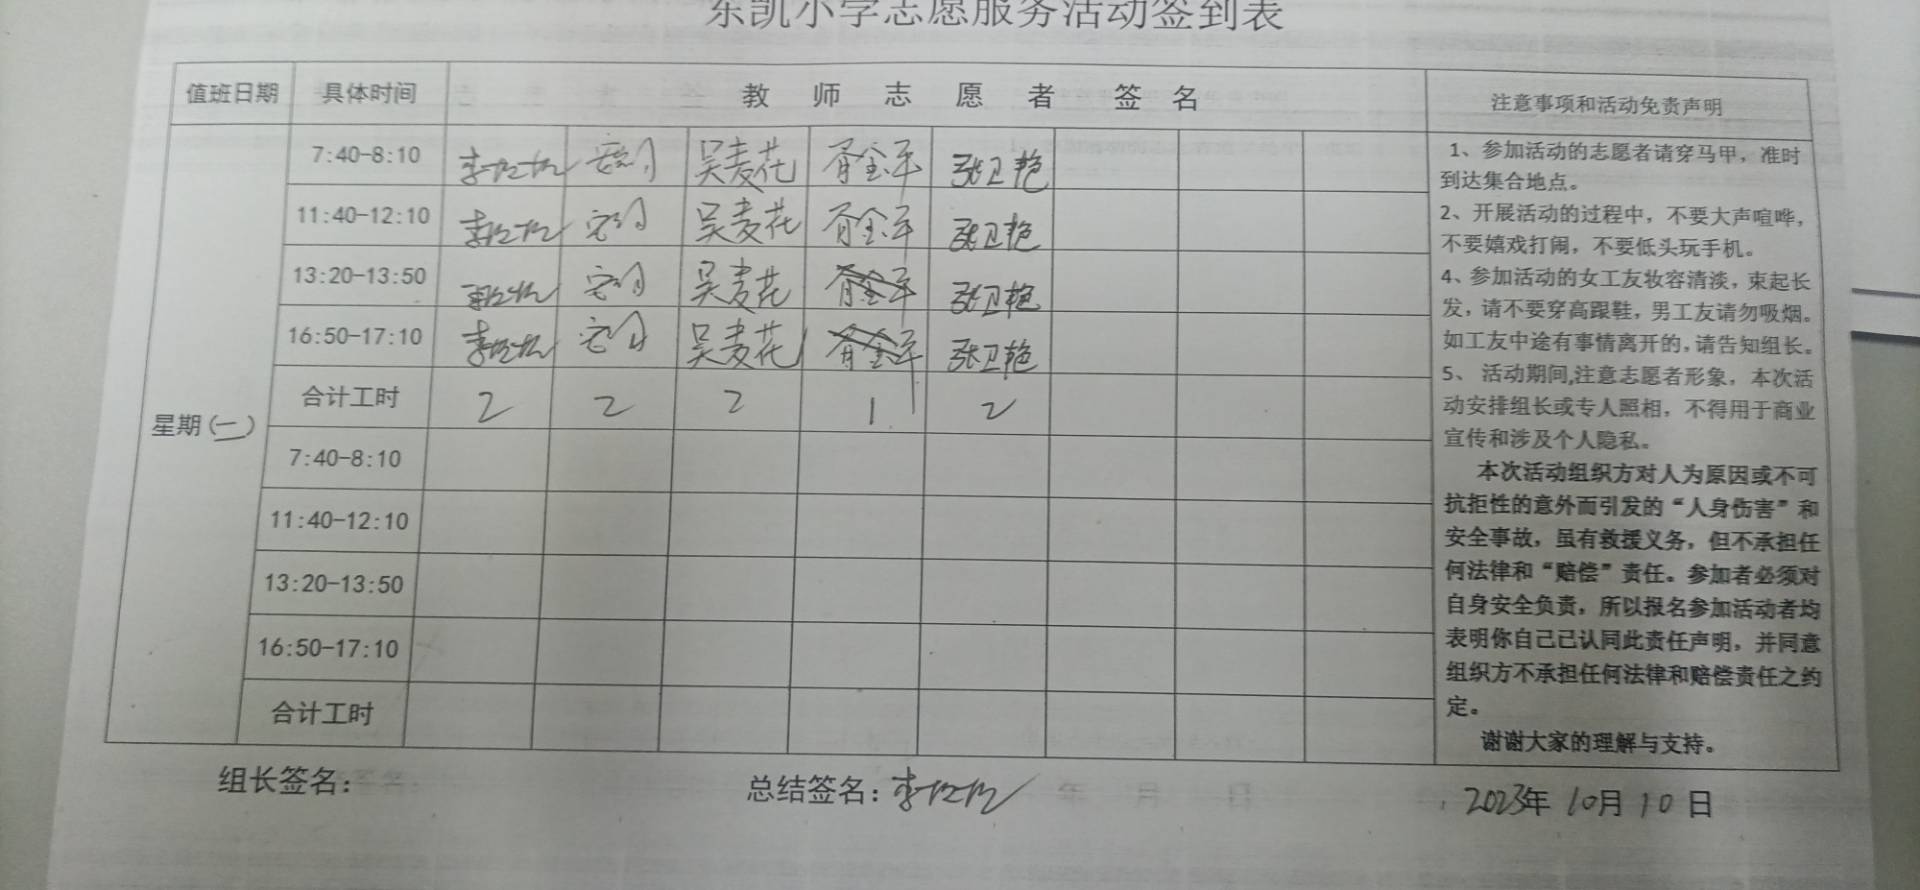 东凯小学志愿服务活动签到表
值班日期 具体时间 教师志愿者签名 注意事项和活动免责声明
7:40-8:10 吴麦花 张卫艳
11:40-12:10 吴麦花 张卫艳
13:20-13:50 吴麦花 张卫艳
16:50-17:10 吴麦花 张卫艳
合计工时 2 2 2 1 2
星期(二)
7:40-8:10
11:40-12:10
13:20-13:50
16:50-17:10
合计工时
1、参加活动的志愿者请穿马甲，准时
到达集合地点。
2、开展活动的过程中，不要大声喧哗，
不要嬉戏打闹，不要低头玩手机。
4、参加活动的女工友妆容清淡，束起长
发，请不要穿高跟鞋，男工友请勿吸烟。
如工友中途有事情离开的，请告知组长。
5、 活动期间,注意志愿者形象，本次活
动安排组长或专人照相，不得用于商业
宣传和涉及个人隐私。
本次活动组织方对人为原因或不可
抗拒性的意外而引发的“人身伤害”和
安全事故，虽有救援义务，但不承担任
何法律和“赔偿”责任。参加者必须对
自身安全负责，所以报名参加活动者均
表明你自己已认同此责任声明，并同意
组织方不承担任何法律和赔偿责任之约
定。
谢谢大家的理解与支持。
组长签名： 总结签名： 2023年10月10日